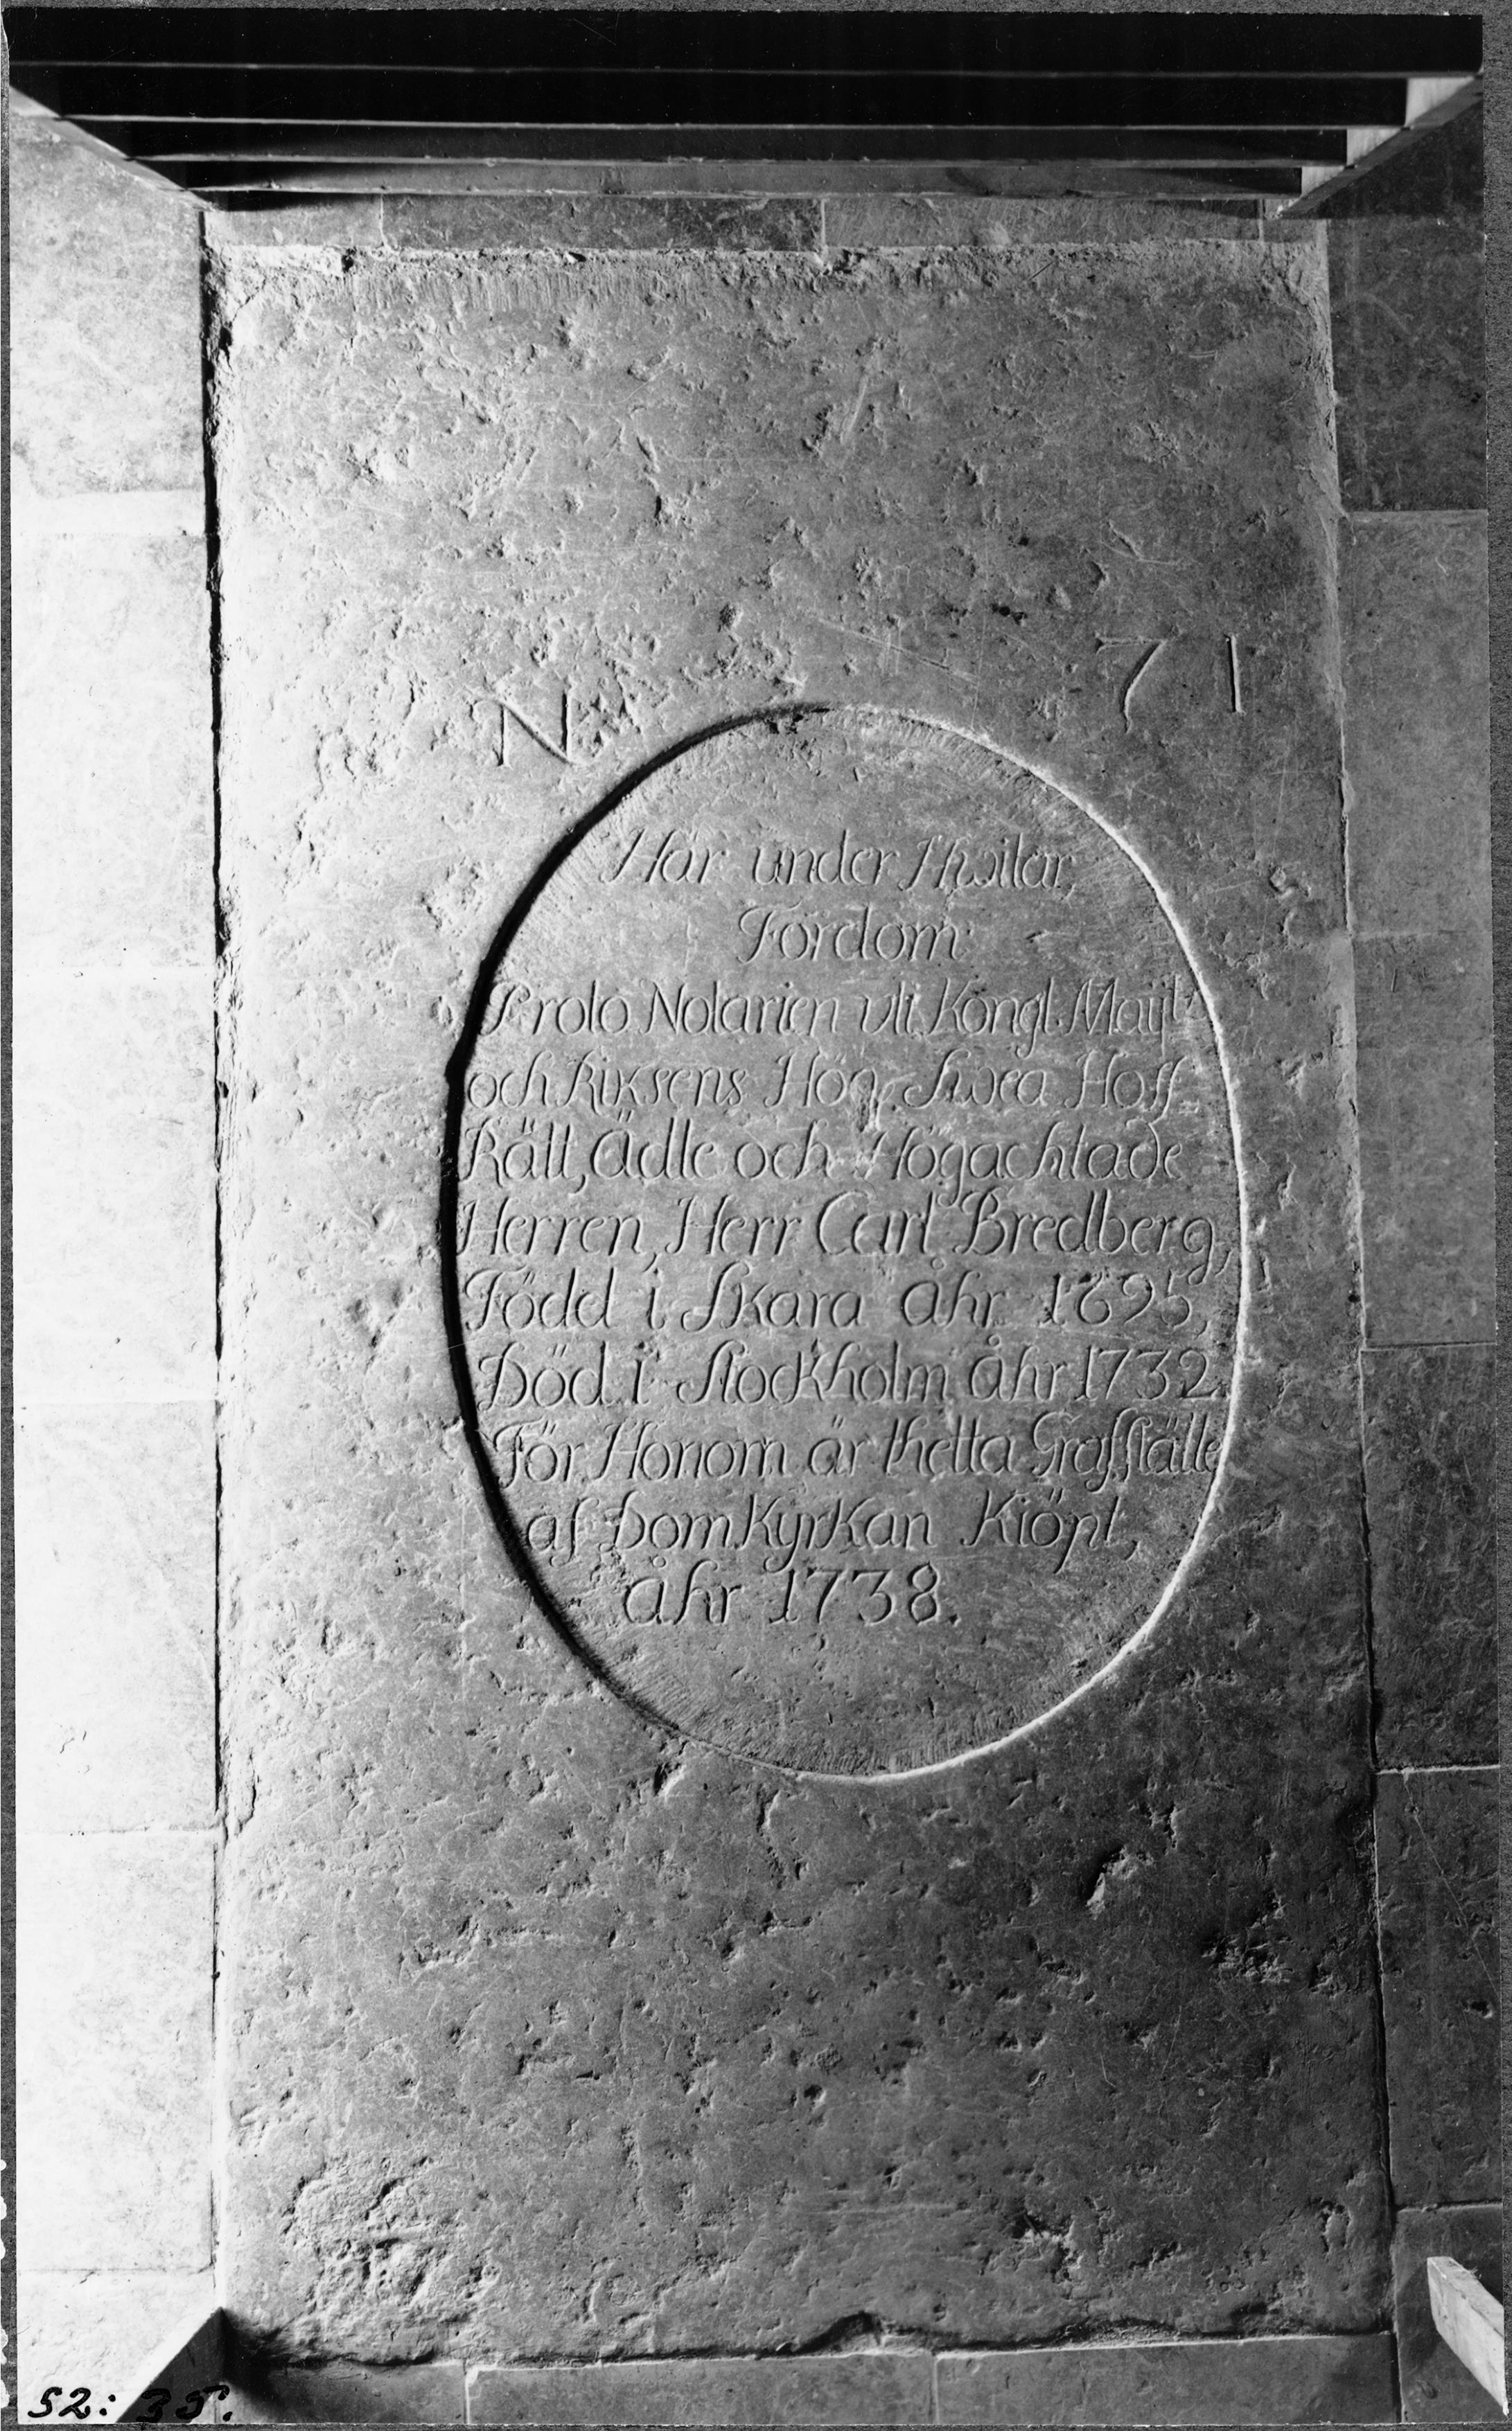 N. 71
Här under Hwilar,
Fordom
Proto Notarien uti Kongl. Maijts
och Riksens Högl. Swea Hoff
Rätt, Ädle och Högachtade
Herren, Herr Carl Bredberg,
Född i Skara åhr 1695,
Död i Stockholm åhr 1732.
För Honom är thetta Grafställe
af DomKyrKan Kiöpt,
åhr 1738.
52: 35.